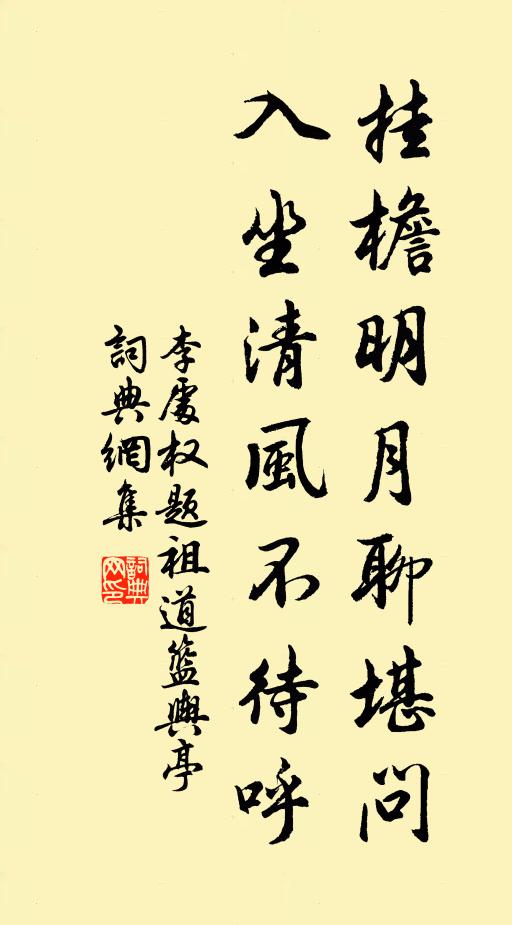 挂檐明月聊堪問
入坐清風不待呼
李處权题祖道籃輿亭
詞典網集
詞典
网印